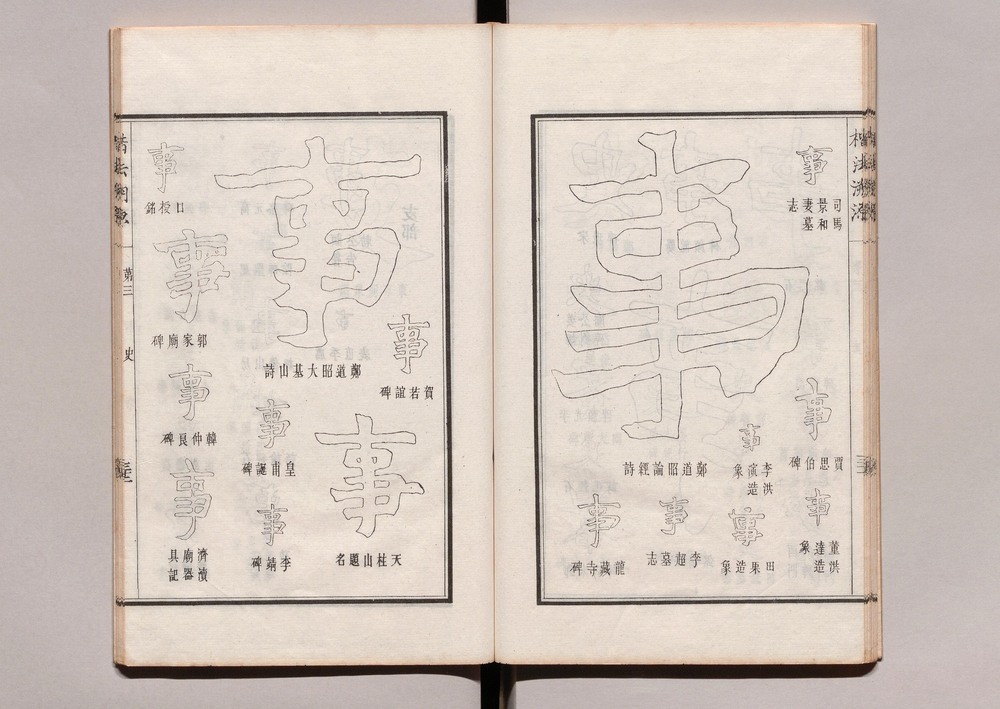 楷法溯源
事
司馬
景和
妻墓
志
事
賈思伯碑
事
董洪
達造
象
事
鄭道昭論經詩
事
李洪
演造
象
事
田果造象
事
李超墓志
事
龍藏寺碑
事
鄭道昭大基山詩
事
賀若誼碑
事
天柱山題名
事
皇甫誕碑
事
李靖碑
事
口授銘
事
郭家廟碑
事
韓仲良碑
事
濟瀆
廟器
具記
第三
史